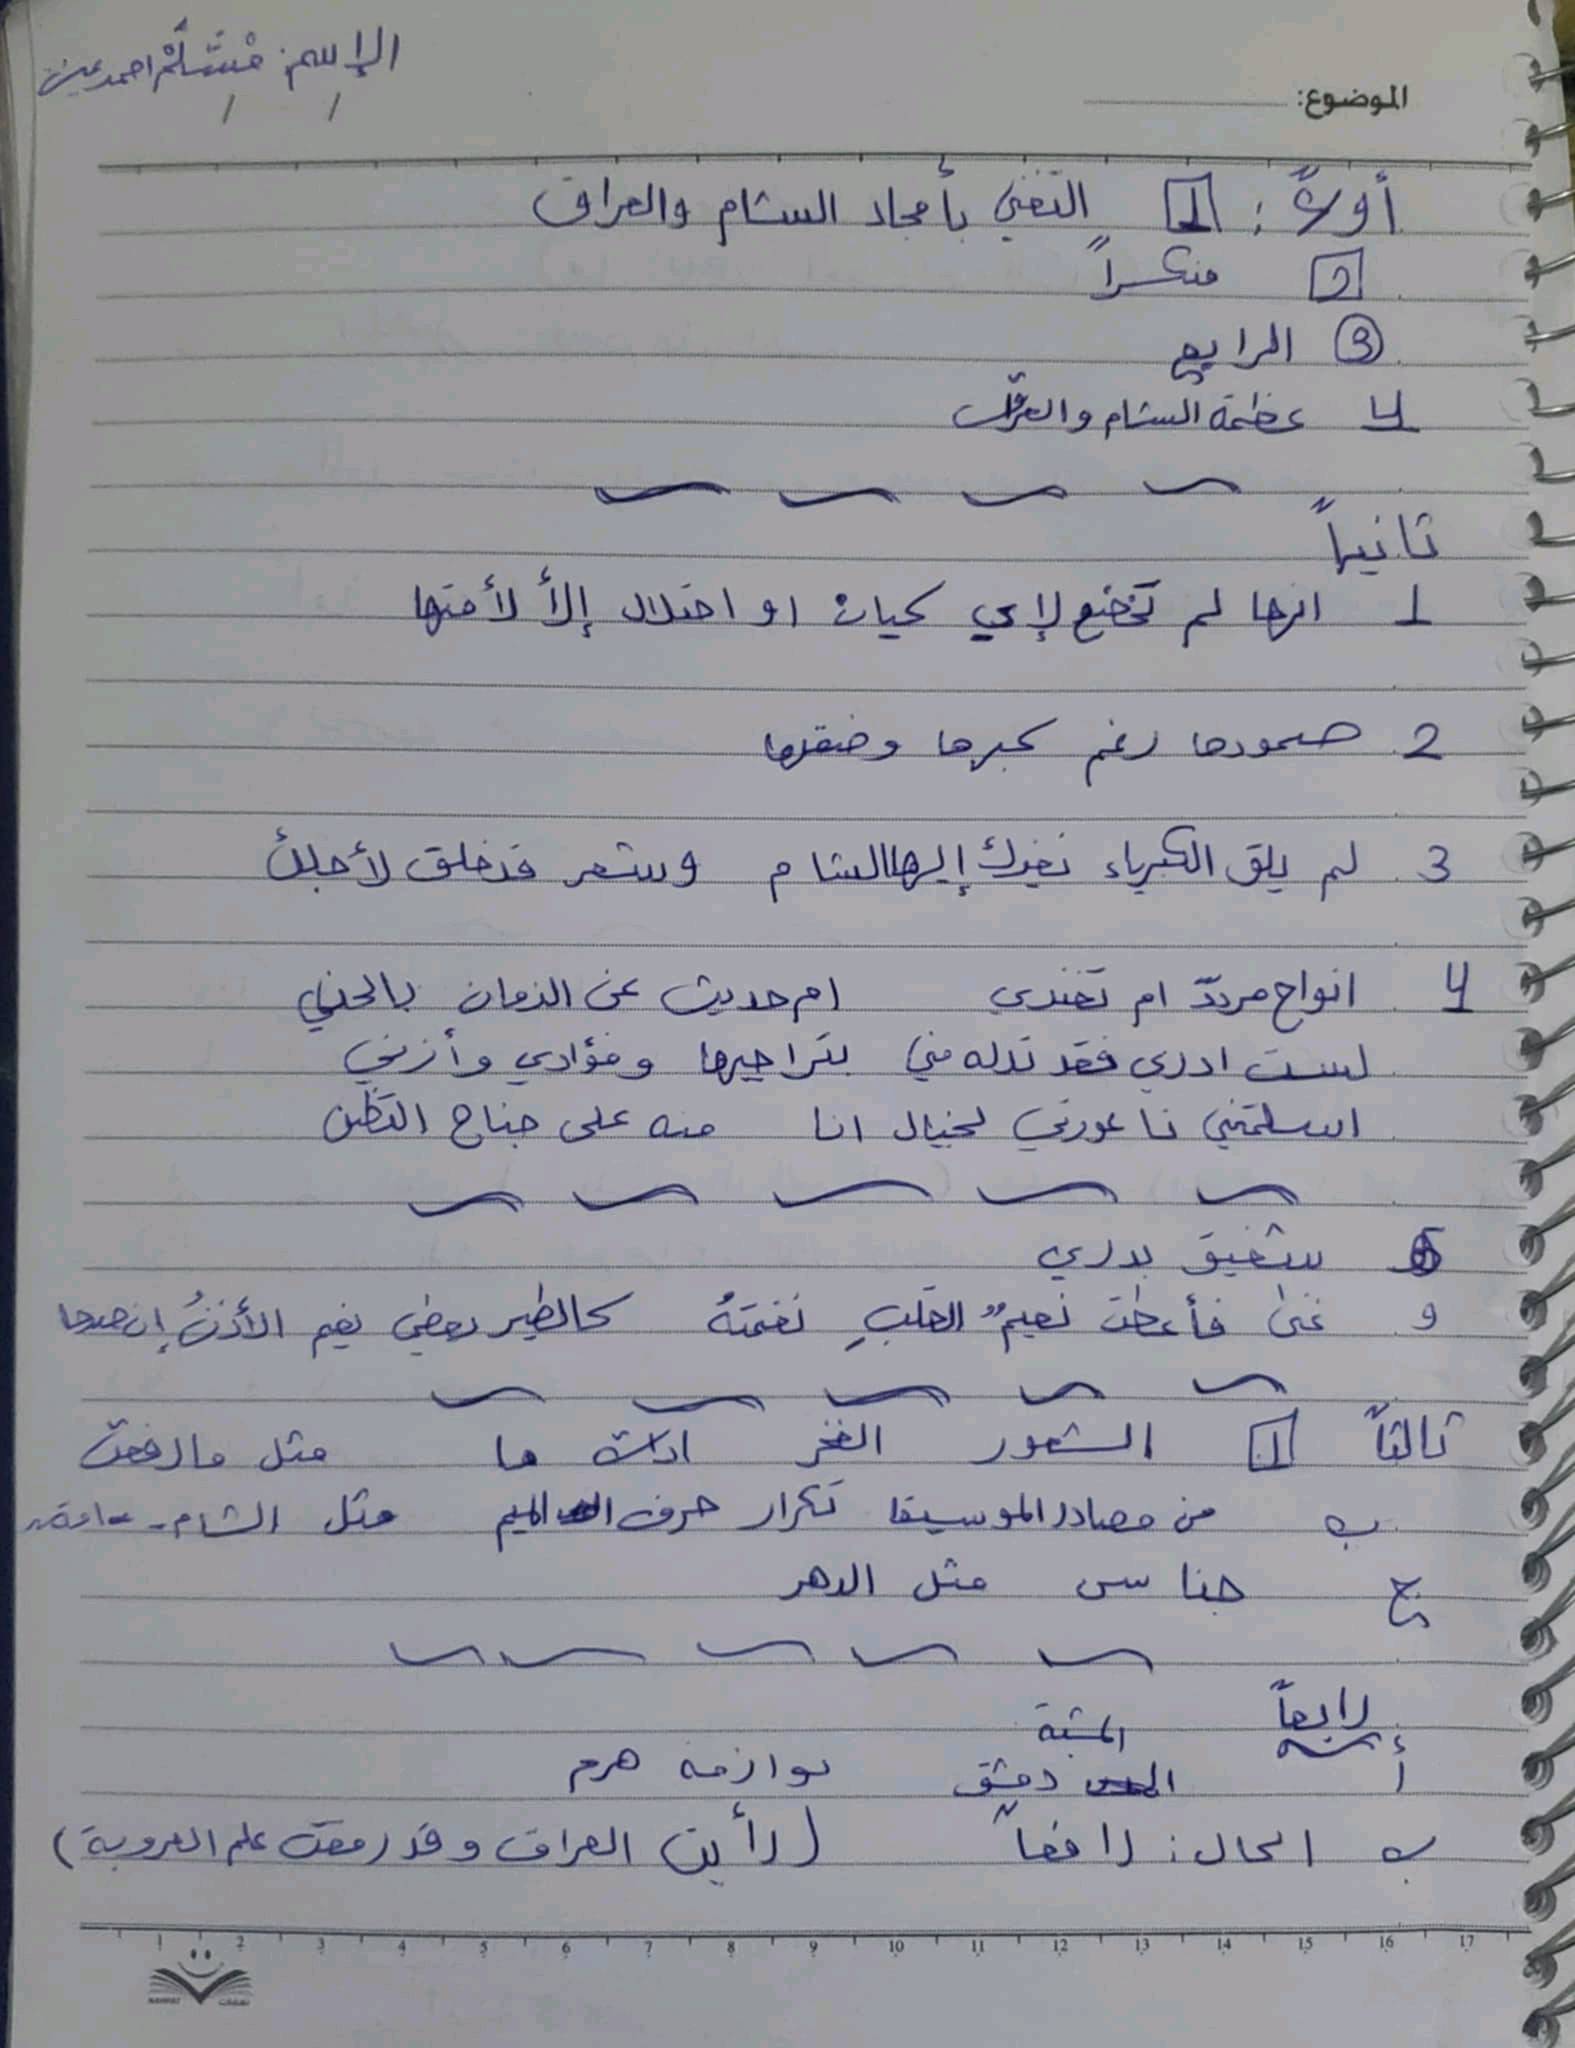 الإسم: مُسَلَّمْ احمد
الموضوع:
أولاً: 1 التغني بأمجاد الشام والعراق
2 منكسراً
3 الرابع
4 عظمة الشام والعراق
ثانياً
1 انها لم تخضع لإي كيان او احتلال إلأ لأمتها
2 صمودها رغم كبرها وضعفها
3 لم يلق الكبرياء بغيرك إيها الشام وشعر قد خلق لأجلك
4 انواح مردد ام تغندى ام حديث عن الزمان
لست ادري فقد تدله مني بتراجيها وفؤادي وأزني
اسلمتني ناعورتي لخيال انا منه على جناح التظن
5 شفيق بدري
و غنى فأعطت نعيم القلبِ نغمتهُ كالطير يعطي نعيم الأذنُ إن صدحا
ثالثاً 1 الشعور الفخر ادات ما مثل ما رفعت
ب من مصادر الموسيقا تكرار حرف الميم مثل الشام-
ج جناس مثل الدهر
رابعاً
المشبة
أ دمشق توازمه هرم
ب الحال: رافعاً (رأيت العراق وقد رفعت علم العروبة)
1 2 3 4 5 6 7 8 9 10 11 12 13 14 15 16 17